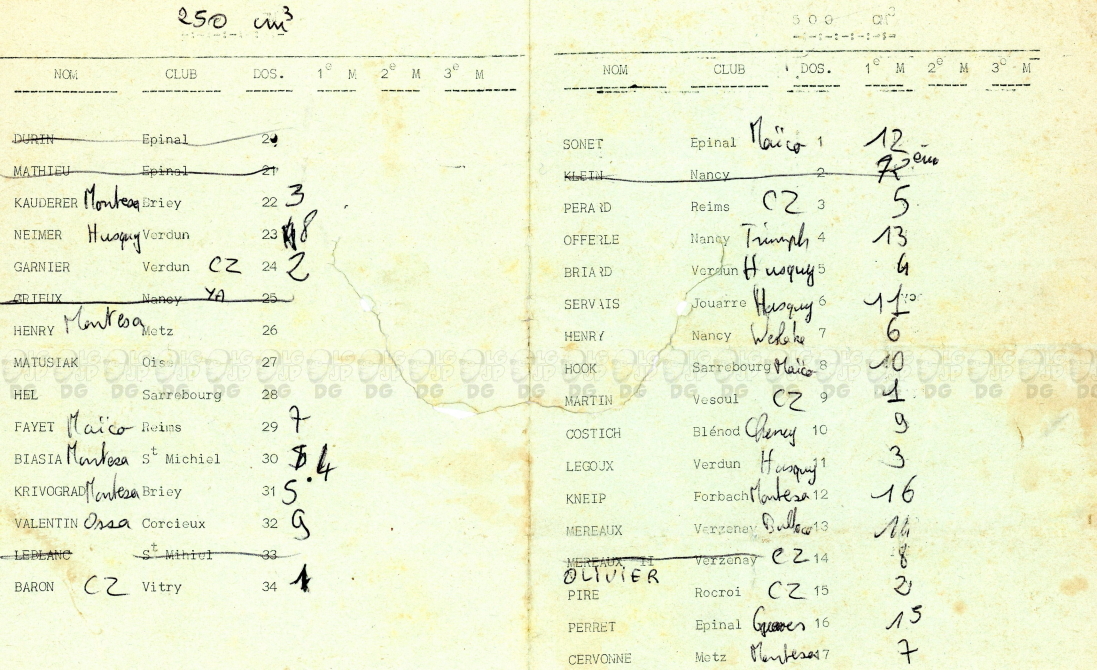 250 cm³
NOM CLUB DOS. 1e M 2e M 3e M
DURIN Epinal 20
MATHIEU Epinal 21
KAUDERER Montesa Briey 22 3
NEIMER Husqy Verdun 23 8
GARNIER Verdun CZ 24 2
GRIEUX Nancy YA 25
HENRY Montesa Metz 26
MATUSIAK Ois 27
HEL Sarrebourg 28
FAYET Maïco Reims 29 7
BIASIA Montesa St Michiel 30 4
KRIVOGRAD Montesa Briey 31 5
VALENTIN Ossa Corcieux 32 9
LEBLANC St Mihiel 33
BARON CZ Vitry 34 1
500 cm³
NOM CLUB DOS. 1e M 2e M 3e M
SONET Epinal Maïco 1 12
KLEIN Nancy 2
PERARD Reims CZ 3 5
OFFERLE Nancy Triumph 4 13
BRIARD Verdun Husquy 5 4
SERVAIS Jouarre Husquy 6 11
HENRY Nancy 7 6
HOOK Sarrebourg Maïco 8 10
MARTIN Vesoul CZ 9 1
COSTICH Blénod Cheney 10 9
LEGOUX Verdun Husquy 11 3
KNEIP Forbach Montesa 12 16
MEREAUX Verzenay 13 14
MEREAUX II Verzenay CZ 14 8
OLIVIER
PIRE Rocroi CZ 15 2
PERRET Epinal 16 15
CERVONNE Metz Montesa 17 7